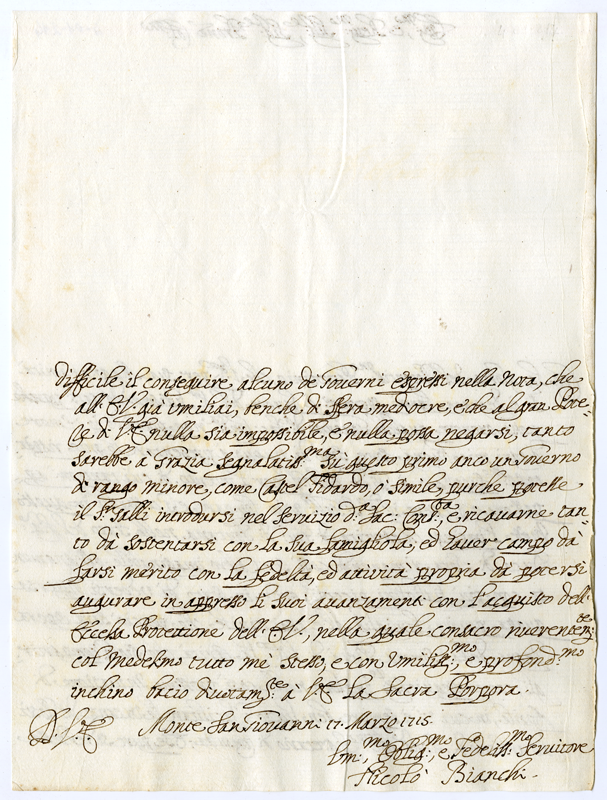 difficile il conseguire alcuno de Governi espressi nella Nota, che
all' E. V. già umiliai, benche di sfera mediocre, e che al gran Pote=
re di V. E. nulla sia impossibile, e nulla possa negarsi, tanto
sarebbe à Grazia segnalatiss.ma su questo primo anco un Governo
di rango minore, come Castel Fidardo, ò simile, purche potesse
il S.r Galli introdursi nel servizio d.a Sac. Con.ta, e ricavarne tan=
to dà sostentarsi con la sua famigliola, ed haver campo dà
farsi merito con la fedeltà, ed attività propria dà potersi
augurare in appresso li suoi avanzamenti con l'acquisto dell'
Eccelsa Protettione dell' E. V., nella quale consacro riverentem.te
col medesimo tutto me stesso, e con umiliss.mo, e profond.mo
inchino bacio divotam.te à V. E. la Sacra Porpora.
D. V. E. Monte San Giovanni 17. Marzo 1715.
Um.mo, Oblig.mo, e Fedeliss.mo Servitore
Nicolò Bianchi.